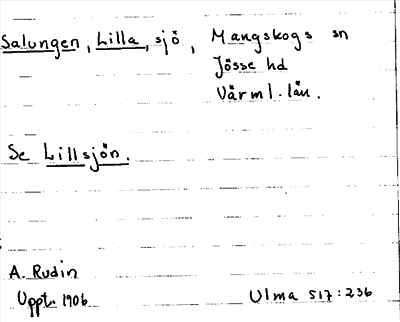 Salungen, Lilla, sjö, Mangskogs sn
Jösse hd
Värml. län.
Se Lillsjön.
A. Rudin
Uppt. 1906
Ulma 517:236